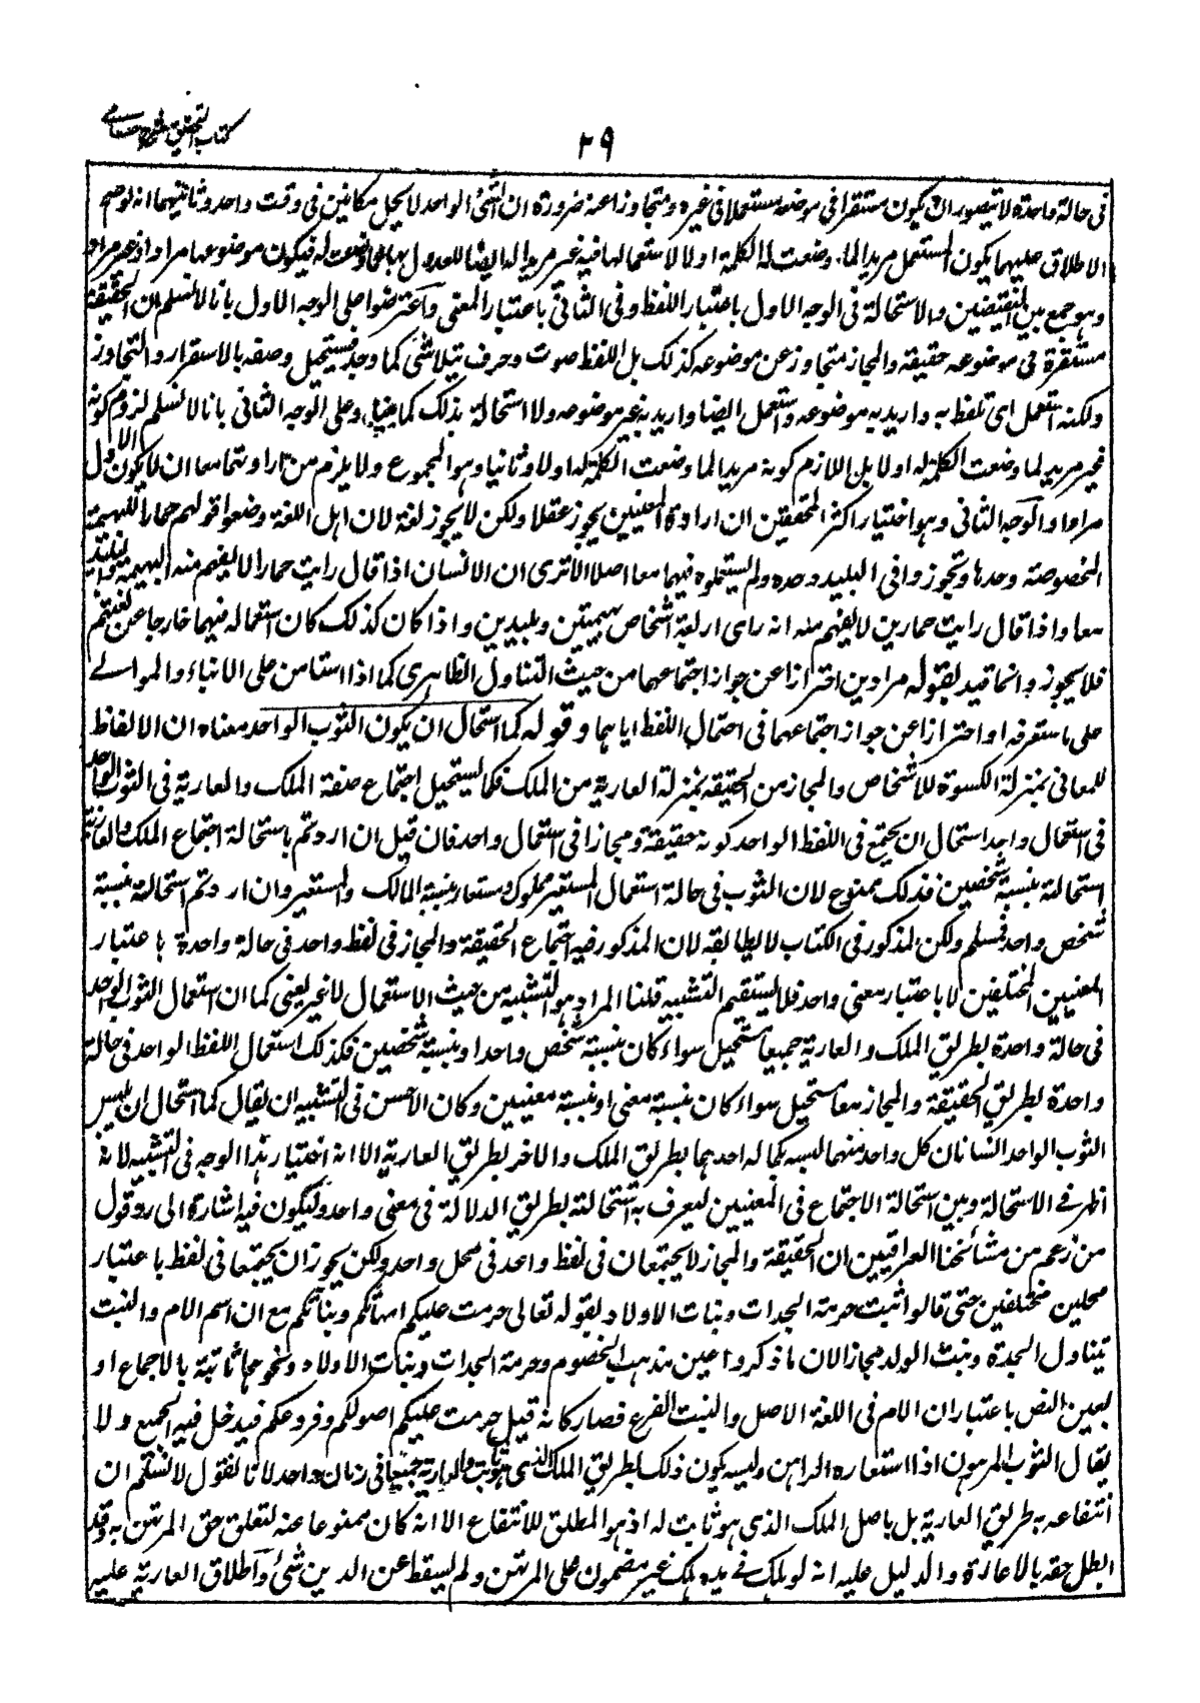 كتاب التحقيق شرح حسامى
٢٩
فى حالة واحدة لا يتصور ان يكون مستقرا فى موضعه مستعملا فى غيره ومتجاوزا عنه ضرورة ان الشئ الواحد لا يحل مكانين فى وقت واحد وثانيهما انه لو صح
الاطلاق عليهما يكون المستعمل مريدا لما وضعت له الكلمة اولا لاستعمالها فيه غير مريد له ايضا للعدول بها عما وضعت له فيكون موضوعها مرادا غير مراد
وهو جمع بين النقيضين والاستحالة فى الوجه الاول باعتبار اللفظ وفى الثانى باعتبار المعنى واعترضوا على الوجه الاول بانا لا نسلم ان الحقيقة
مستقرة فى موضوعه حقيقة والمجاز متجاوز عن موضوعه كذلك بل اللفظ صوت وحرف يتلاشى كما وجد فيستحيل وصفه بالاستقرار والتجاوز
ولكنه استعمل اى تلفظ به واريد به موضوعه واستعمل ايضا واريد به غير موضوعه ولا استحالة بذلك كما بينا وعلى الوجه الثانى بانا لا نسلم لزوم كونه
غير مريد لما وضعت الكلمة له اولا بل اللازم كونه مريدا لما وضعت الكلمة له اولا وثانيا وهو المجموع ولا يلزم من ارادتهما معا ان لا يكون الاول
مرادا والوجه الثانى وهو اختيار اكثر المحققين ان ارادة المعنيين يجوز عقلا ولكن لا يجوز لغة لان اهل اللغة وضعوا قولهم حمارا للبهيمة
المخصوصة وحدها وتجوزوا فى البليد وحده ولم يستعملوه فيهما معا اصلا الا ترى ان الانسان اذا قال رايت حمارا لا يفهم منه البهيمة والبليد
معا واذا قال رايت حمارين لا يفهم منه انه راى اربعة اشخاص بهيمتين وبليدين واذا كان كذلك كان استعماله فيهما خارجا عن لغتهم
فلا يجوز وانما قيد بقوله مرادين احترازا عن جواز اجتماعهما من حيث التناول الظاهرى كما اذا استامن على الابناء والموالى
على ما ستعرفه او احترازا عن جواز اجتماعهما فى احتمال اللفظ اياهما وقوله كما استحال ان يكون الثوب الواحد معناه ان الالفاظ
للمعانى بمنزلة الكسوة للاشخاص والمجاز من الحقيقة بمنزلة العارية من الملك فكما يستحيل اجتماع صفة الملك والعارية فى الثوب الواحد
فى استعمال واحد استحال ان يجتمع فى اللفظ الواحد كونه حقيقة ومجازا فى استعمال واحد فان قيل ان اردتم باستحالة اجتماع الملك والعارية
استحالة بنسبة شخصين فذلك ممنوع لان الثوب فى حالة استعمال المستعير مملوك ومستعار بنسبة المالك والمستعير وان اردتم استحالة بنسبة
شخص واحد فمسلم ولكن المذكور فى الكتاب لا يطابقه لان المذكور فيه اجتماع الحقيقة والمجاز فى لفظ واحد فى حالة واحدة باعتبار
المعنيين المختلفين لا باعتبار معنى واحد فلا يستقيم التشبيه قلنا المراد هو التشبيه من حيث الاستعمال لا غير يعنى كما ان استعمال الثوب الواحد
فى حالة واحدة بطريق الملك والعارية جميعا مستحيل سواء كان بنسبة شخص واحد او بنسبة شخصين فكذلك استعمال اللفظ الواحد فى حالة
واحدة بطريق الحقيقة والمجاز معا مستحيل سواء كان بنسبة معنى او بنسبة معنيين وكان الاحسن فى التشبيه ان يقال كما استحال ان يلبس
الثوب الواحد انسانان كل واحد منهما يلبسه بكماله احدهما بطريق الملك والاخر بطريق العارية الا انه اختيار هذا الوجه فى التشبيه لانه
اظهر فى الاستحالة وبين استحالة الاجتماع فى المعنيين ليعرف به استحالته بطريق الدلالة فى معنى واحد وليكون فيه اشارة الى رد قول
من زعم من مشائخنا العراقيين ان الحقيقة والمجاز لا يجتمعان فى لفظ واحد فى محل واحد ولكن يجوز ان يجتمعا فى لفظ باعتبار
محلين مختلفين حتى قالوا ثبت حرمة الجدات وبنات الاولاد بقوله تعالى حرمت عليكم امهاتكم وبناتكم مع ان اسم الام والبنت
يتناول الجدة وبنت الولد مجازا لان ما ذكروا عين مذهب الخصوم وحرمة الجدات وبنات الاولاد ونحوهما ثابتة بالاجماع او
بعين النص باعتبار ان الام فى اللغة الاصل والبنت الفرع فصار كانه قيل حرمت عليكم اصولكم وفروعكم فيدخل فيه الجميع ولا
يقال الثوب المرهون اذا استعاره الراهن ولبسه يكون ذلك بطريق الملك الذى هو ثابت والعارية جميعا فى زمان واحد لانا نقول لا نسلم ان
انتفاعه بطريق العارية بل باصل الملك الذى هو ثابت له اذ هو المطلق للانتفاع الا انه كان ممنوعا عنه لتعلق حق المرتهن به وقد
ابطل حقه بالاعارة والدليل عليه انه لو هلك فى يده هلك غير مضمون على المرتهن ولم يسقط عن الدين شئ واطلاق العارية عليه